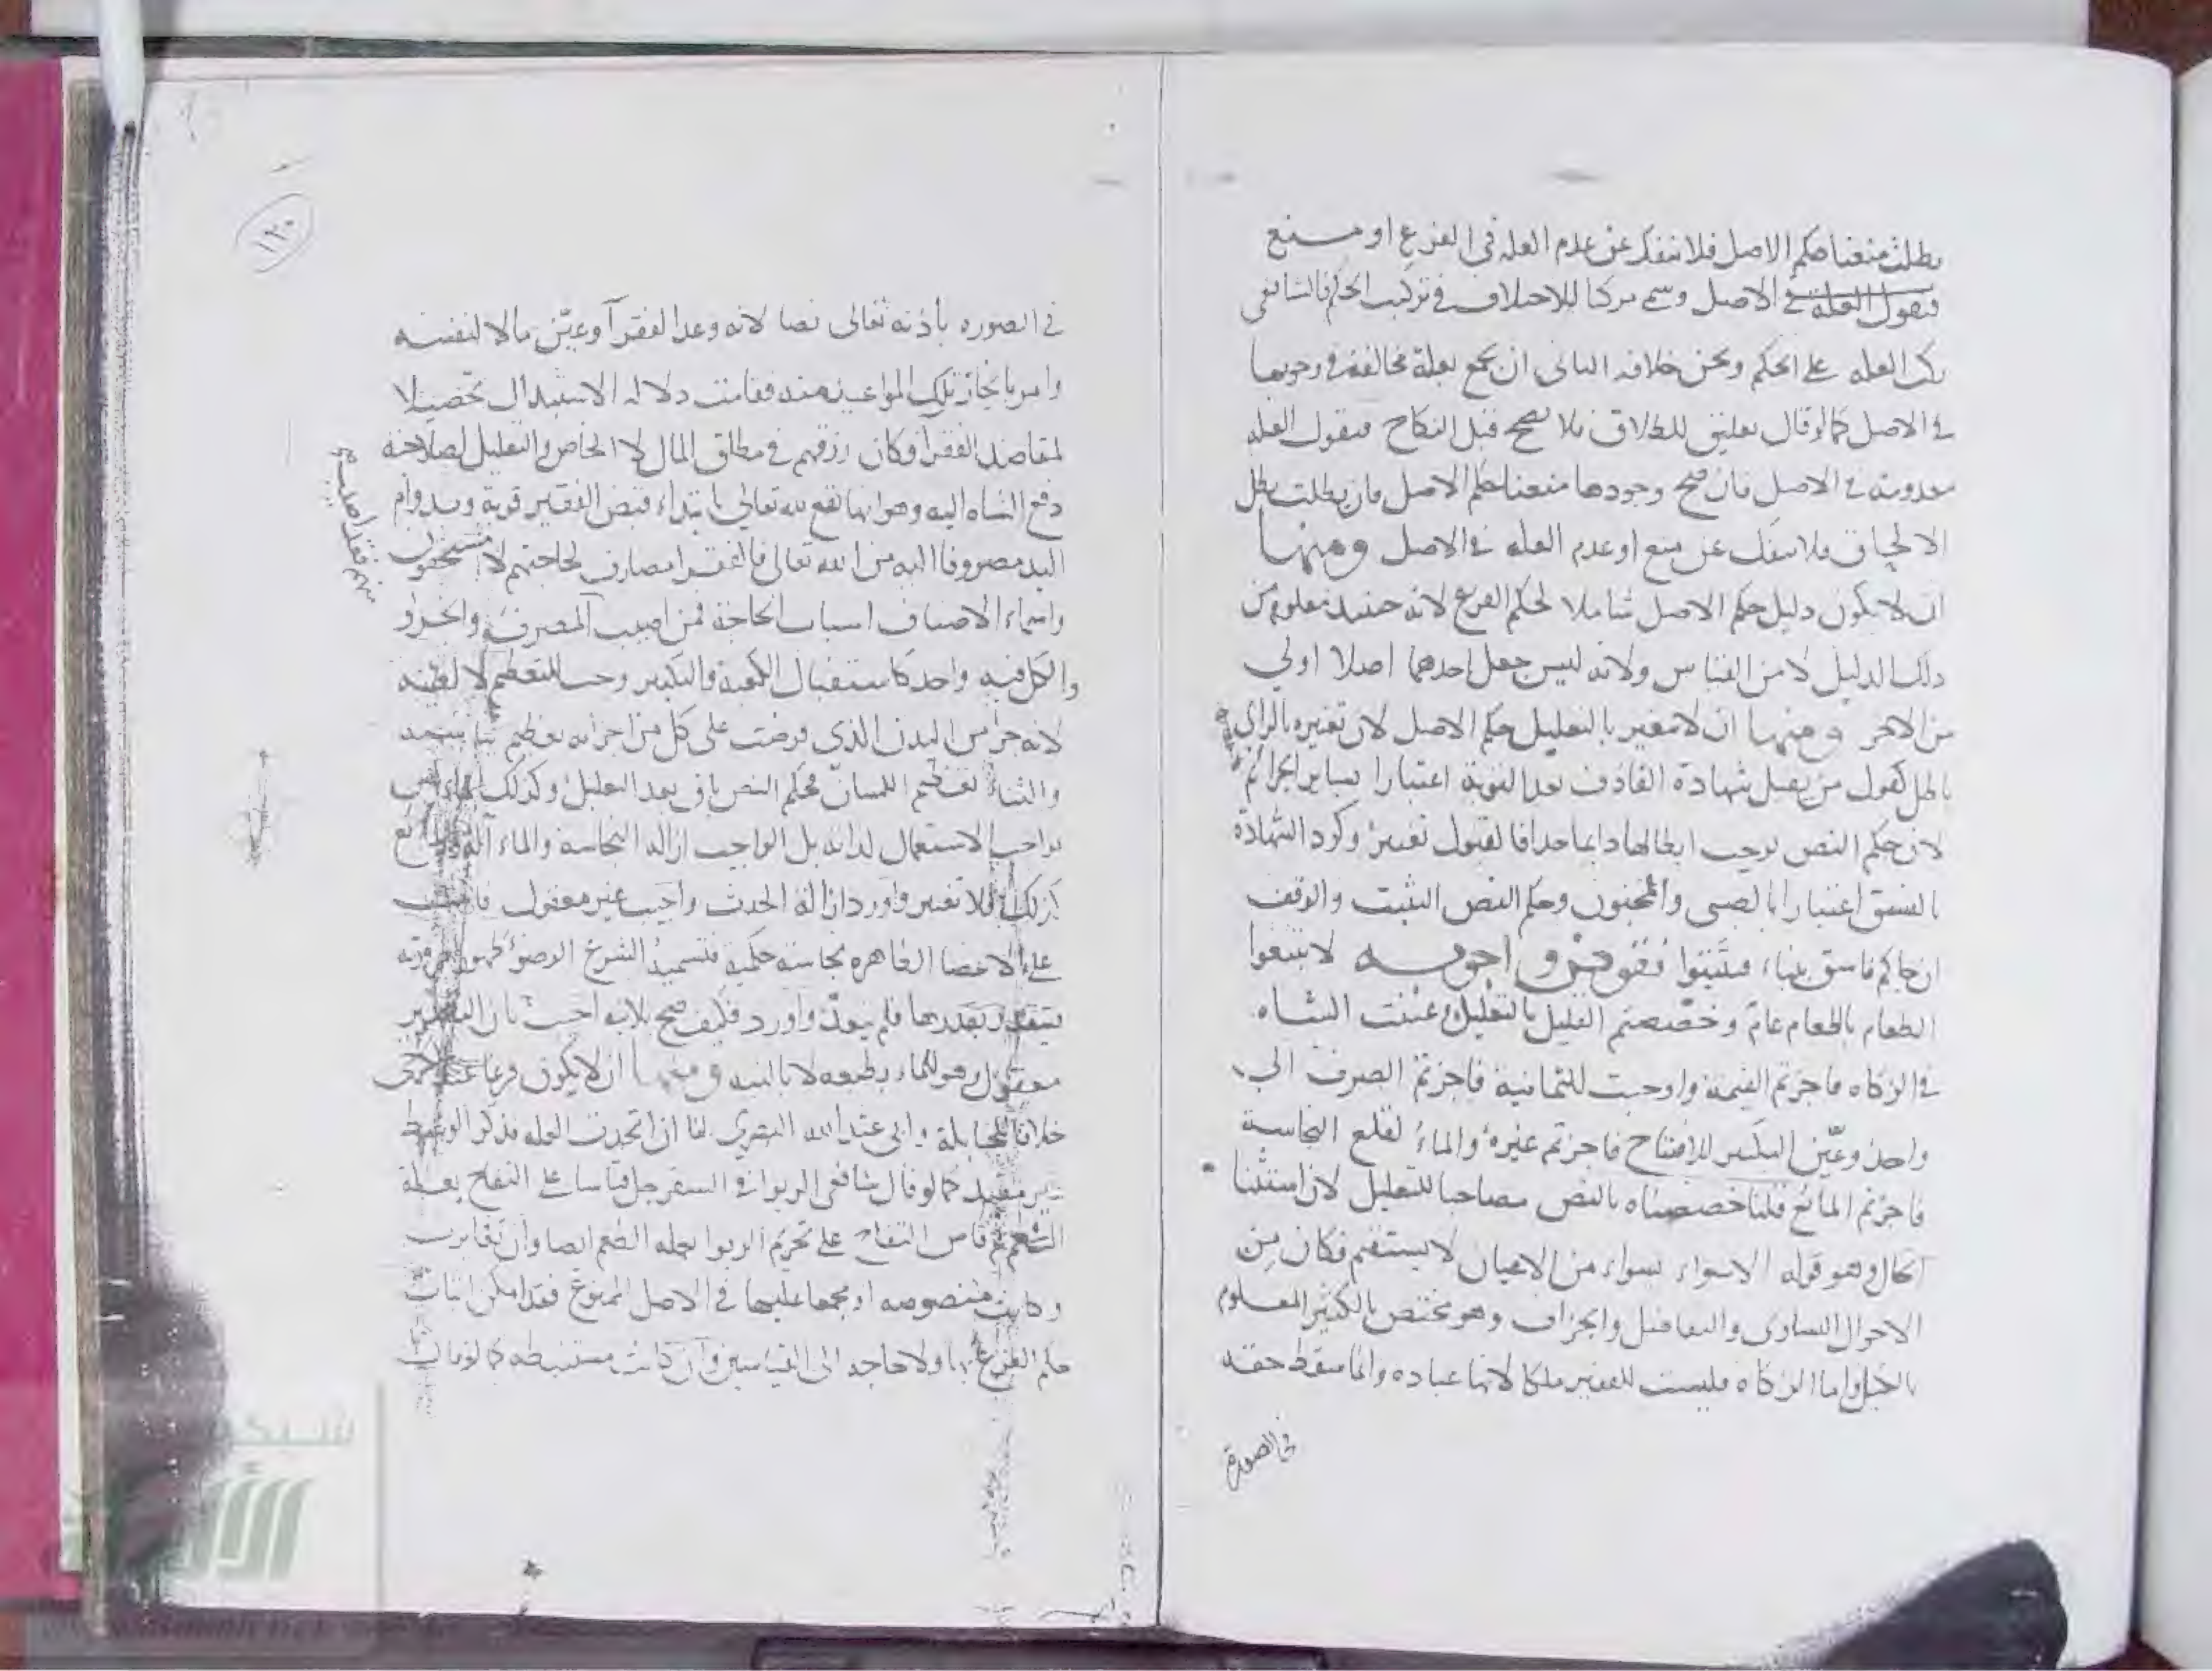 بطلت منعنا حكم الاصل فلا ننفك عن عدم العله فى الفرع او منع
فنقول العلة فى الاصل وسمى مركبا للاختلاف فى تركيب الحكم فالشافعى
ركب العله على الحكم ونحن خلافه الثانى ان يجمع بعلة مختلفة فى وجودها
فى الاصل كما لو قال تعليق للطلاق فلا يصح قبل النكاح فنقول العله
معدومة فى الاصل فان صح وجودها منعنا حكم الاصل فان بطلت بطل
الالحاق فلا ينفك عن منع او عدم العله فى الاصل ومنها
ان لا يكون دليل حكم الاصل شاملا لحكم الفرع لانه حينئذ معلوم من
ذلك الدليل لا من القياس ولانه ليس جعل احدهما اصلا اولى
من الاخر ومنها ان لا يتغير بالتعليل حكم الاصل لان تغيره بالراى
باطل كقول من يقبل شهادة القاذف بعد التوبة اعتبارا بسائر الجرائم
لان حكم النص يوجب ابطالها دائما حدا فالقبول تغيير وكرد الشهادة
بالفسق اعتبارا بالصبى والمجنون وحكم النص التثبت والوقف
ان جاكم فاسق بنباء فتثبتوا نقوض واجوبه لا تبيعوا
الطعام بالطعام عام وخصصتم القليل بالتعليل وعينت الشاه
فى الزكاه فاجزتم القيمة واوجبت للثمانية فاجزتم الصرف الى
واحد وعين التكبير للافتتاح فاجزتم غيره والماء لقلع النجاسة
فاجزتم المائع قلنا خصصناه بالنص مصاحبا للتعليل لان استثنا
الحال وهو قوله الا سواء بسواء من الاعيان لا يستقيم فكان من
الاحوال التساوى والتفاضل والجزاف وهو مختص بالكثير المعلوم
بالكيل واما الزكاه فليست للفقير ملكا لانها عباده وانما سقط حقه
فى الصورة
١٢٠
فى الصوره باذنه تعالى نصا لانه وعد الفقرآ وعيّن مالا لنفسه
وامر بانجاز تلك المواعيد منه فقامت دلاله الاستبدال تحصيلا
لمقاصد الفقرآ فكان رزقهم فى مطلق المال لا الخاص والتعليل لصلاحية
دفع الشاه اليه وهو انها تقع لله تعالى بابتداء قبض الفقير قربة وبدوام
اليد مصروفا اليه من الله تعالى فالفقرا مصارف لحاجتهم لا مستحقون
واسماء الاصناف اسباب الحاجة فمن اصيب المصرف والجزؤ
والكل فيه واحد كاستقبال الكعبة والتكبير وجب للتعظيم لا لعينه
لانه جزأ من البدن الذى فرضت على كل من اجزائه تعظيم
والثناء تعظيم اللسان فحكم النص باق بعد التعليل وكذلك الماء ليس
بواجب الاستعمال لذاته بل الواجب ازالة النجاسة والماء آلة والمائع
كذلك فلا تغير واورد ازالة الحدث واجب غير معقول
على الاعضا الظاهره نجاسة حكمية فتسمية الشرع الوضوء طهورا ضرورته
فيتقدر بقدرها فلم يتعد واورد فكيف صح بلا نيه اجيب بان التطهير
معقول وهو للماء بطبعه لا بالنيه ومنها ان لا يكون فرعا عند الكرخى
خلافا للحنابلة وابى عبد الله البصرى لنا ان اتحدت العله فذكر الوسط
غير مفيد كما لو قال شافعى الربوا فى السفرجل قياسا على التفاح بعلة
الطعم ثم قاس التفاح على تحريم الربوا بعله الطعم ايضا وان تغايرت
وكانت منصوصه او مجمعا عليها فى الاصل الممنوع فقد امكن اثبات
حكم الفرع بها ولا حاجه الى القياسين وان كانت مستنبطه كما لو قال